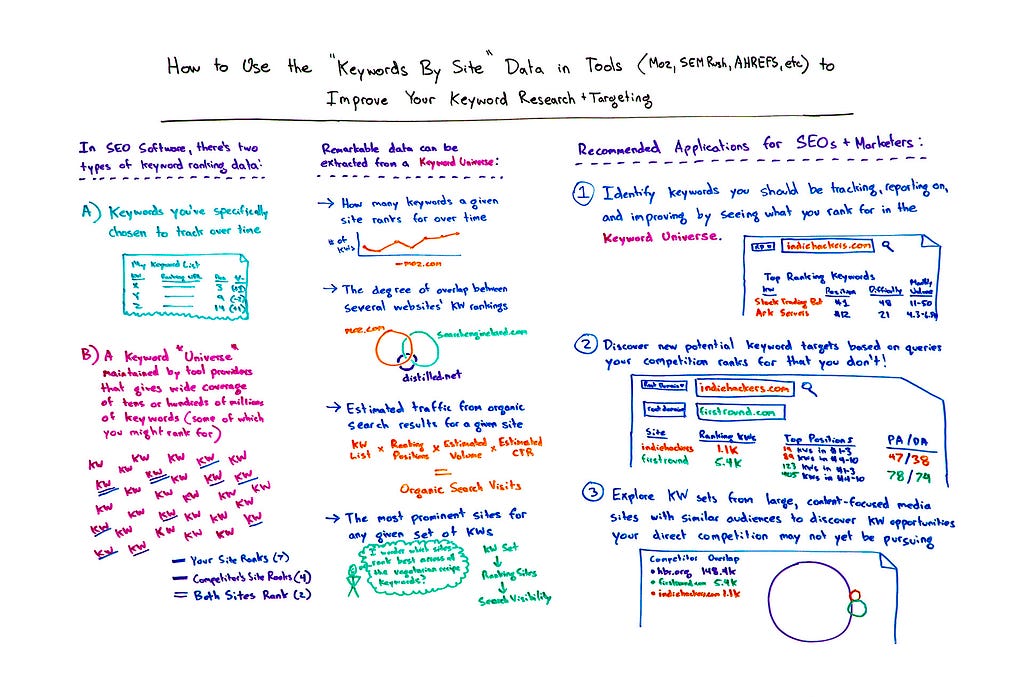 How to Use the "Keywords By Site" Data in Tools (Moz, SEMRush, AHREFS, etc.) to
Improve Your Keyword Research + Targeting
In SEO Software, there's two
types of keyword ranking data:
A) Keywords you've specifically
chosen to track over time
My Keyword List
KW Ranking URL Pos
X 3
Y 9
Z 14
B) A Keyword "Universe"
maintained by tool providers
that gives wide coverage
of tens or hundreds of millions
of keywords (some of which
you might rank for)
KW KW KW KW KW
KW KW KW KW
KW KW KW KW KW
KW KW KW KW
KW KW KW KW
KW KW
Your Site Ranks (7)
Competitor's Site Ranks (4)
Both Sites Rank (2)
Remarkable data can be
extracted from a Keyword Universe:
→ How many keywords a given
site ranks for over time
# of
KWs
moz.com
→ The degree of overlap between
several websites' KW rankings
moz.com
searchengineland.com
distilled.net
→ Estimated traffic from organic
search results for a given site
KW List x Ranking Positions x Estimated Volume x Estimated CTR
=
Organic Search Visits
→ The most prominent sites for
any given set of KWs
I wonder which sites
rank best across all
the vegetarian recipe
keywords?
KW Set
↓
Ranking Sites
↓
Search Visibility
Recommended Applications for SEOs + Marketers:
1 Identify keywords you should be tracking, reporting on,
and improving by seeing what you rank for in the
Keyword Universe.
indiehackers.com
Top Ranking Keywords
KW Position Difficulty Monthly Volume
Stock Trading Bot #1 48 11-50
Ark Servers #12 21
2 Discover new potential keyword targets based on queries
your competition ranks for that you don't!
Root Domain indiehackers.com
root domain firstround.com
Site Ranking KWs Top Positions PA/DA
indiehackers 1.1K 19 KWs in #1-3 47/38
89 KWs in #4-10
firstround 5.4K 123 KWs in #1-3 78/74
405 KWs in #4-10
3 Explore KW sets from large, content-focused media
sites with similar audiences to discover KW opportunities
your direct competition may not yet be pursuing
Competitor Overlap
• hbr.org 148.4K
• firstround.com 5.4K
• indiehackers.com 1.1K